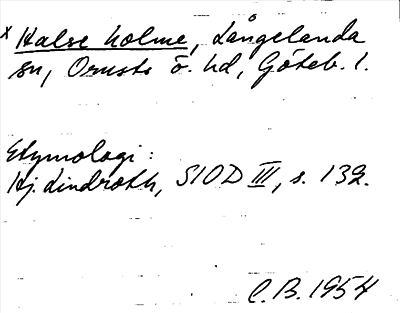 x Halse holme, Långelanda
sn, Orusts ö. hd, Göteb. l.
Etymologi:
Hj. Lindroth, SIOD III, s. 132.
C.B. 1954